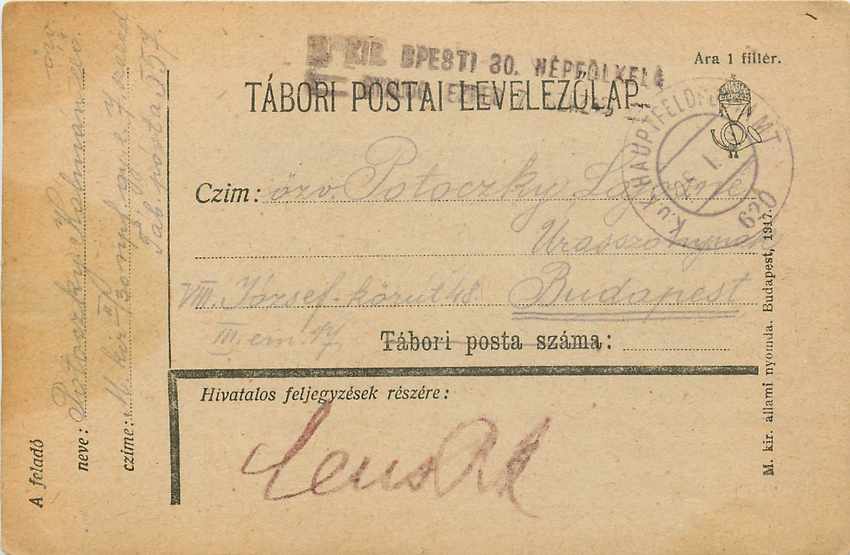 M. KIR. BPESTI 30. NÉPFÖLKELŐ
Ára 1 fillér.
TÁBORI POSTAI LEVELEZŐLAP
K.u.K. HAUPTFELDPOSTAMT
620
Czim: özv. Potoczky Lajosné
Urasszonynak
VIII. József-körut 48. Budapest
III. em.
Tábori posta száma:
Hivatalos feljegyzések részére:
A feladó
neve: Potoczky Kálmán
czime: M. kir. 30 npf. gy. e. 7. század
Táb. posta 357.
M. kir. állami nyomda. Budapest, 1917.